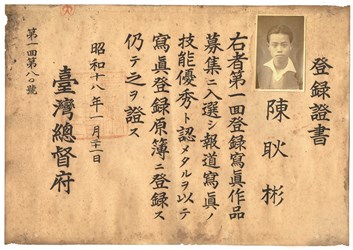 登録證書
陳耿彬
右者第一回登録寫眞作品
募集ニ入選シ報道寫眞ノ
技能優秀ト認メタルヲ以テ
寫眞登録原簿ニ登録ス
仍テ之ヲ證ス
昭和十八年一月二十一日
臺灣總督府
第一回第八〇號